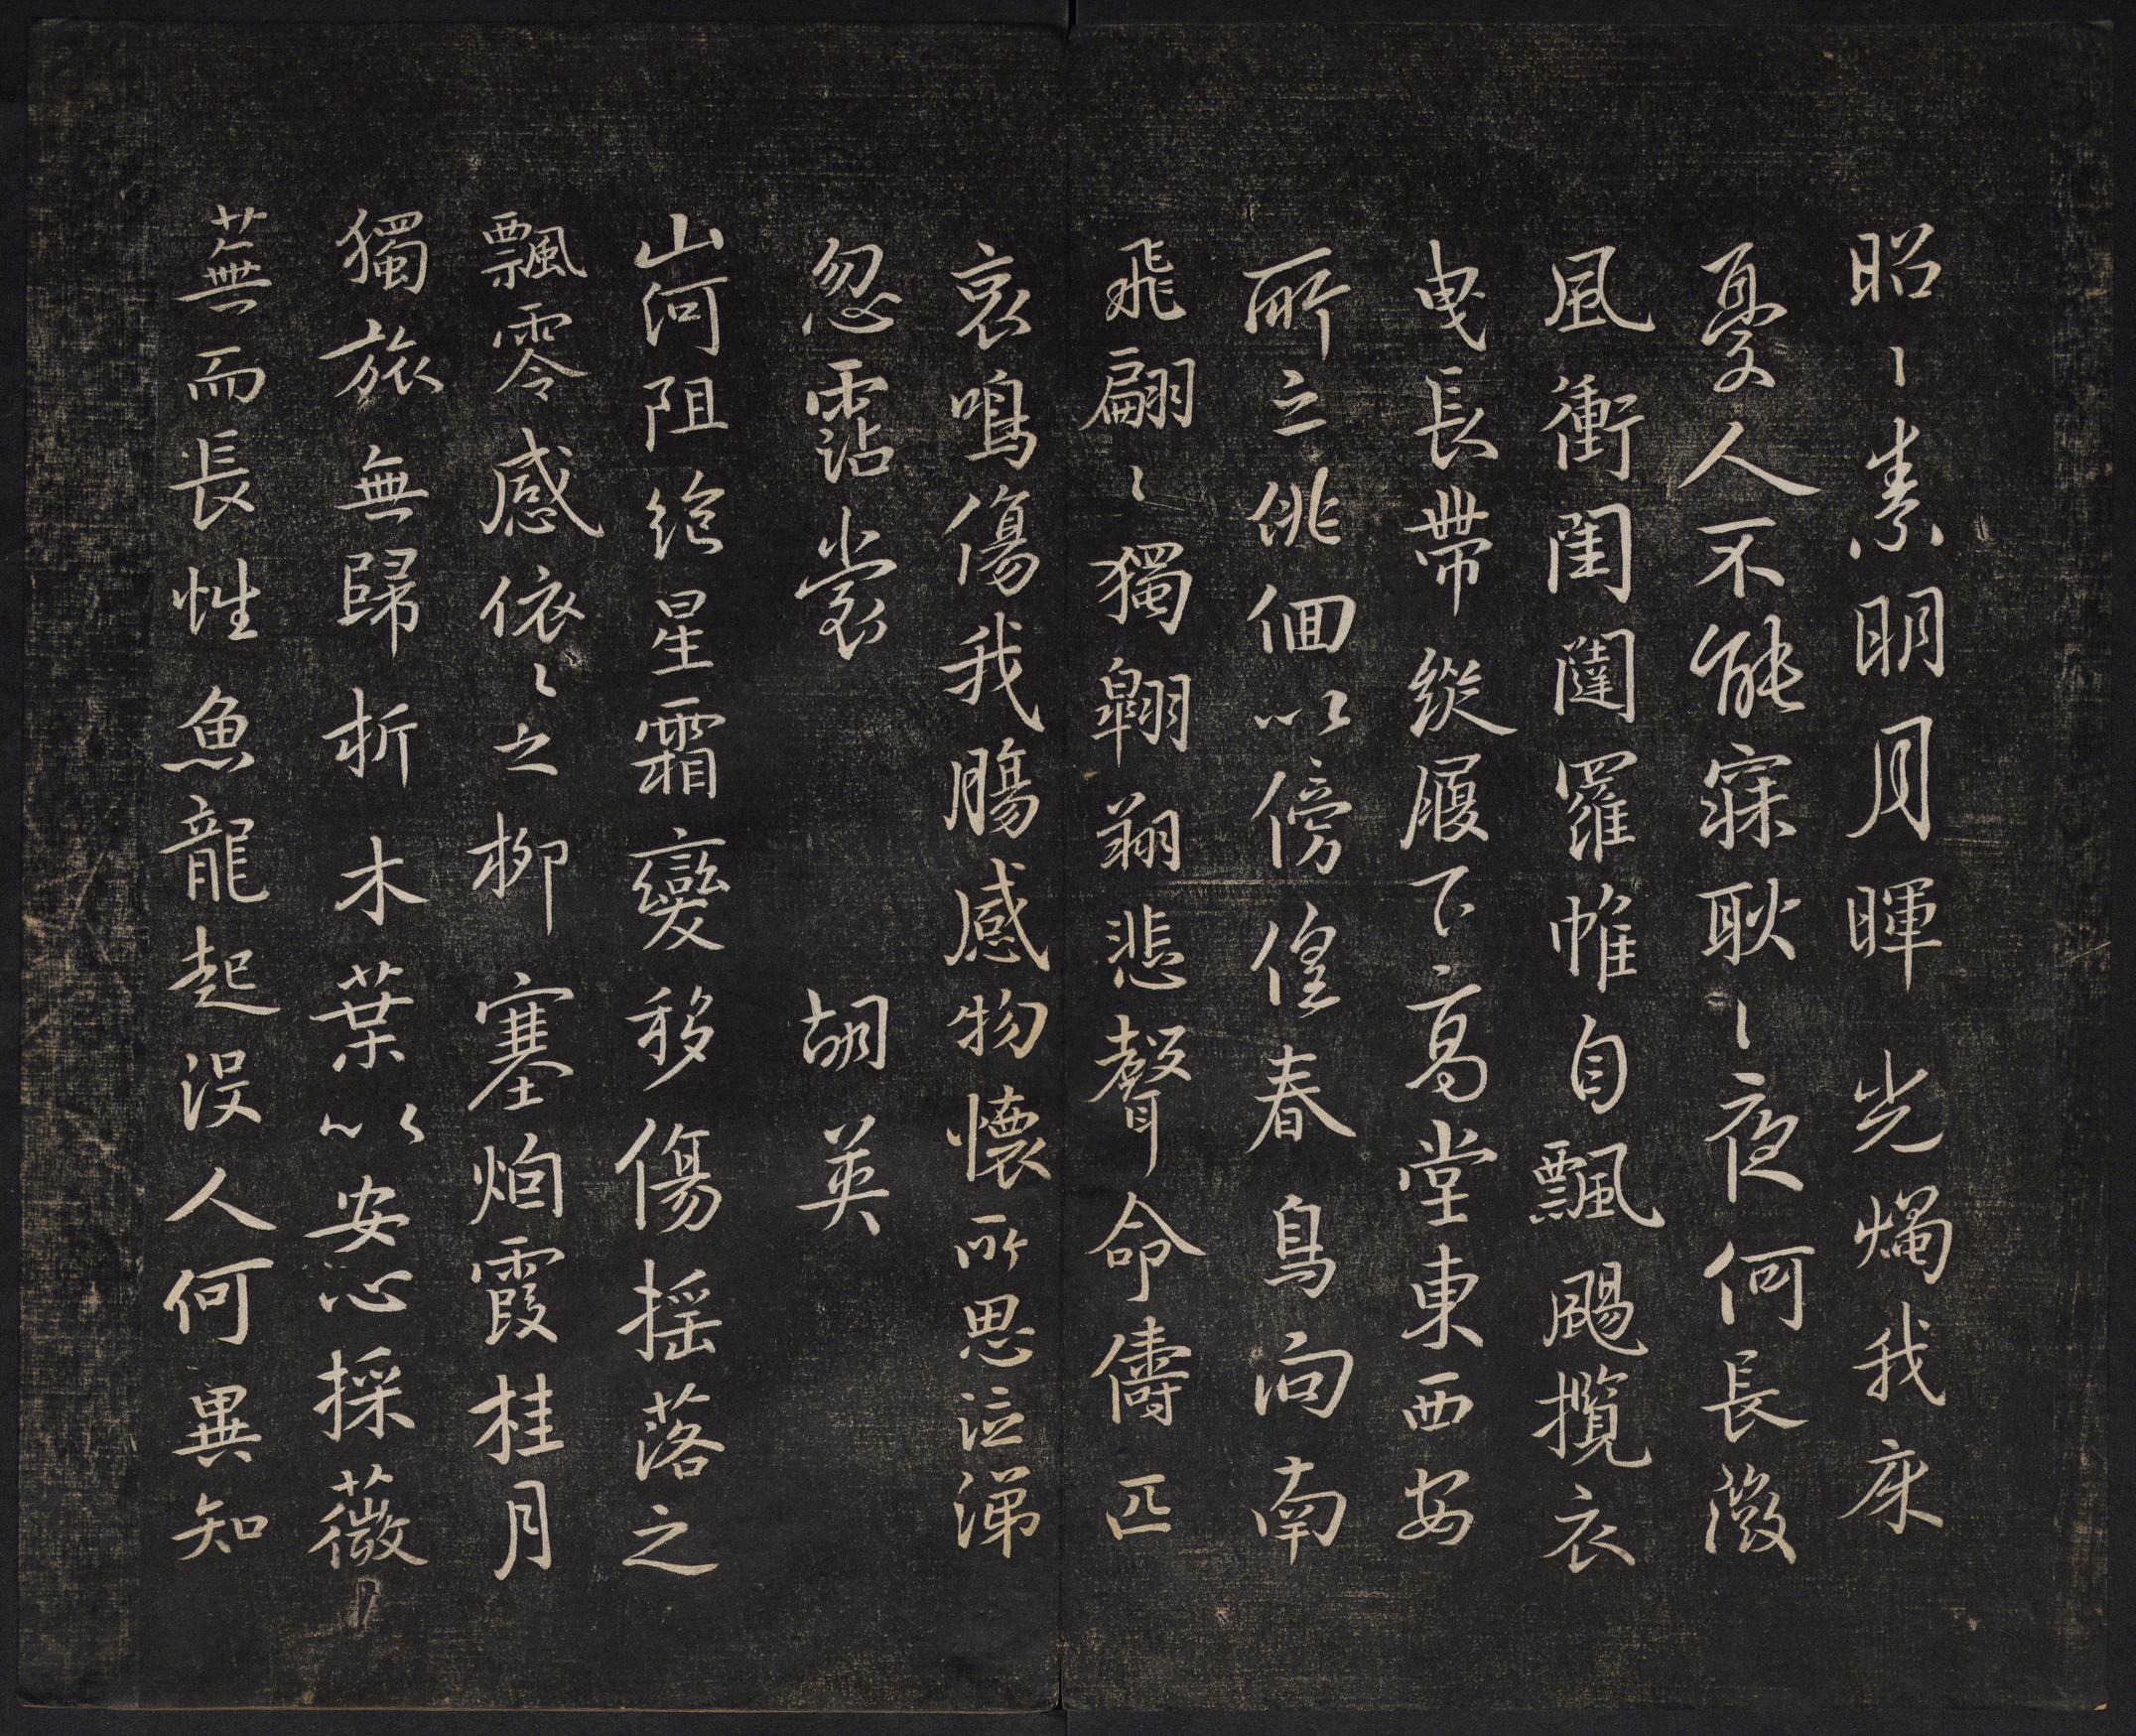 昭〻素明月暉光燭我床
憂人不能寐耿〻夜何長微
風衝閨闥羅帷自飄颺攬衣
曳長帶縱履下高堂東西安
所之徘徊以傍偟春鳥向南
飛翩〻獨翱翔悲聲命儔匹
哀鳴傷我腸感物懷所思泣涕
忽霑裳 胡英
山河阻绝星霜變移傷摇落之
飄零感依〻之柳塞烟霞桂月
獨旅無歸折木葉以安心採薇
蕪而長性魚龍起没人何異知